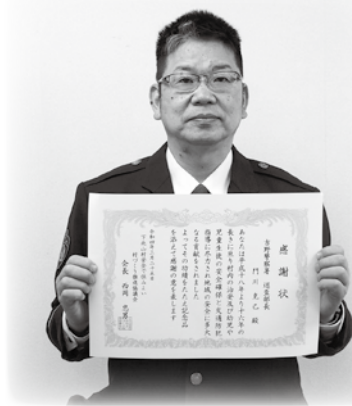 感謝状
吉野警察署 巡査部長
門川 克己 殿
あなたは平成十八年より十六年の
長きに亘り村内の治安及び幼児や
児童生徒の安全確保と交通防犯
指導に尽力され地域の安全に多大
なる貢献をされました
よってその功績をたたえ記念品
を添えて感謝の意を表します
令和四年三月二十五日
村づくり推進協議会
会長 西岡